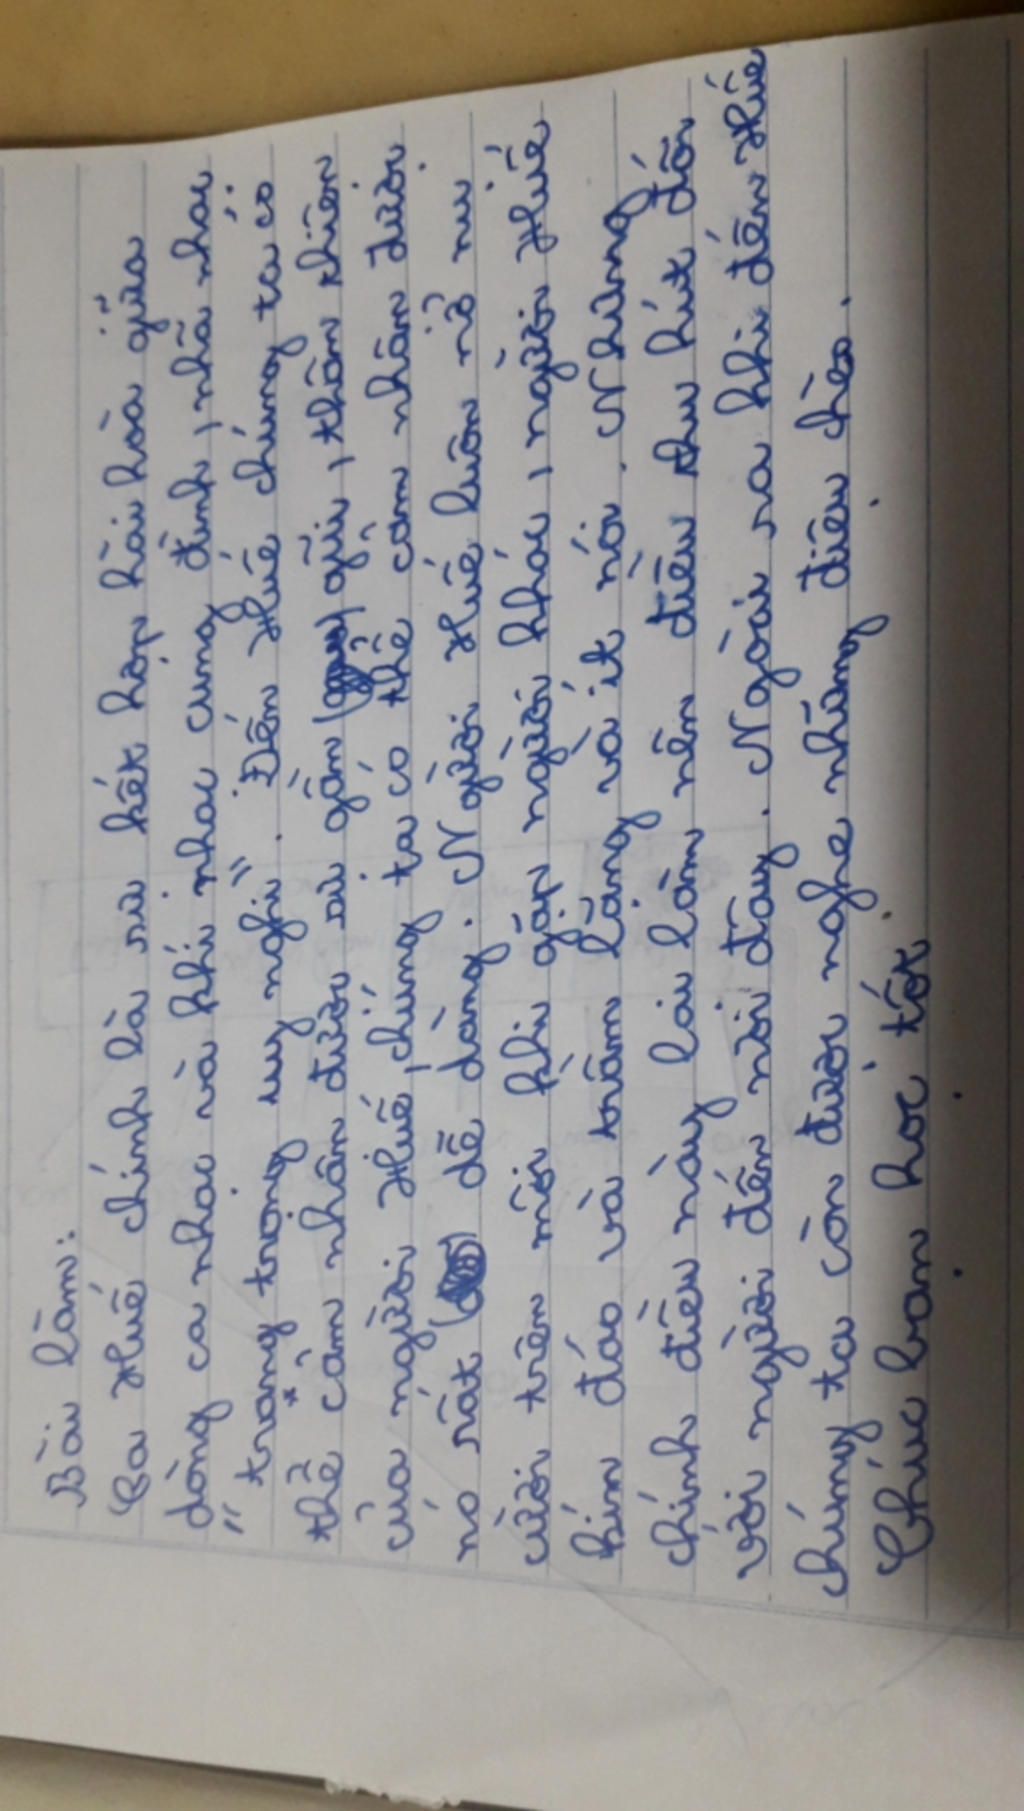 Bài làm:
Ca Huế chính là sự kết hợp hài hòa giữa
dòng ca nhạc và khí nhạc cung đình, nhã nhạc
" trang trọng uy nghi ". Đến Huế chúng ta có
thể cảm nhận được sự gần gũi, thân thiện
của người Huế, chúng ta có thể cảm nhận được
nó rất dễ dàng. Người Huế luôn nở nụ
cười trên môi khi gặp người khác, người Huế
kín đáo và trầm lắng và ít nói. Nhưng
chính điều này lại làm nên điều thu hút đối
với người đến nơi đây. Ngoài ra khi đến Huế
chúng ta còn được nghe những điệu chèo.
Chúc bạn học tốt